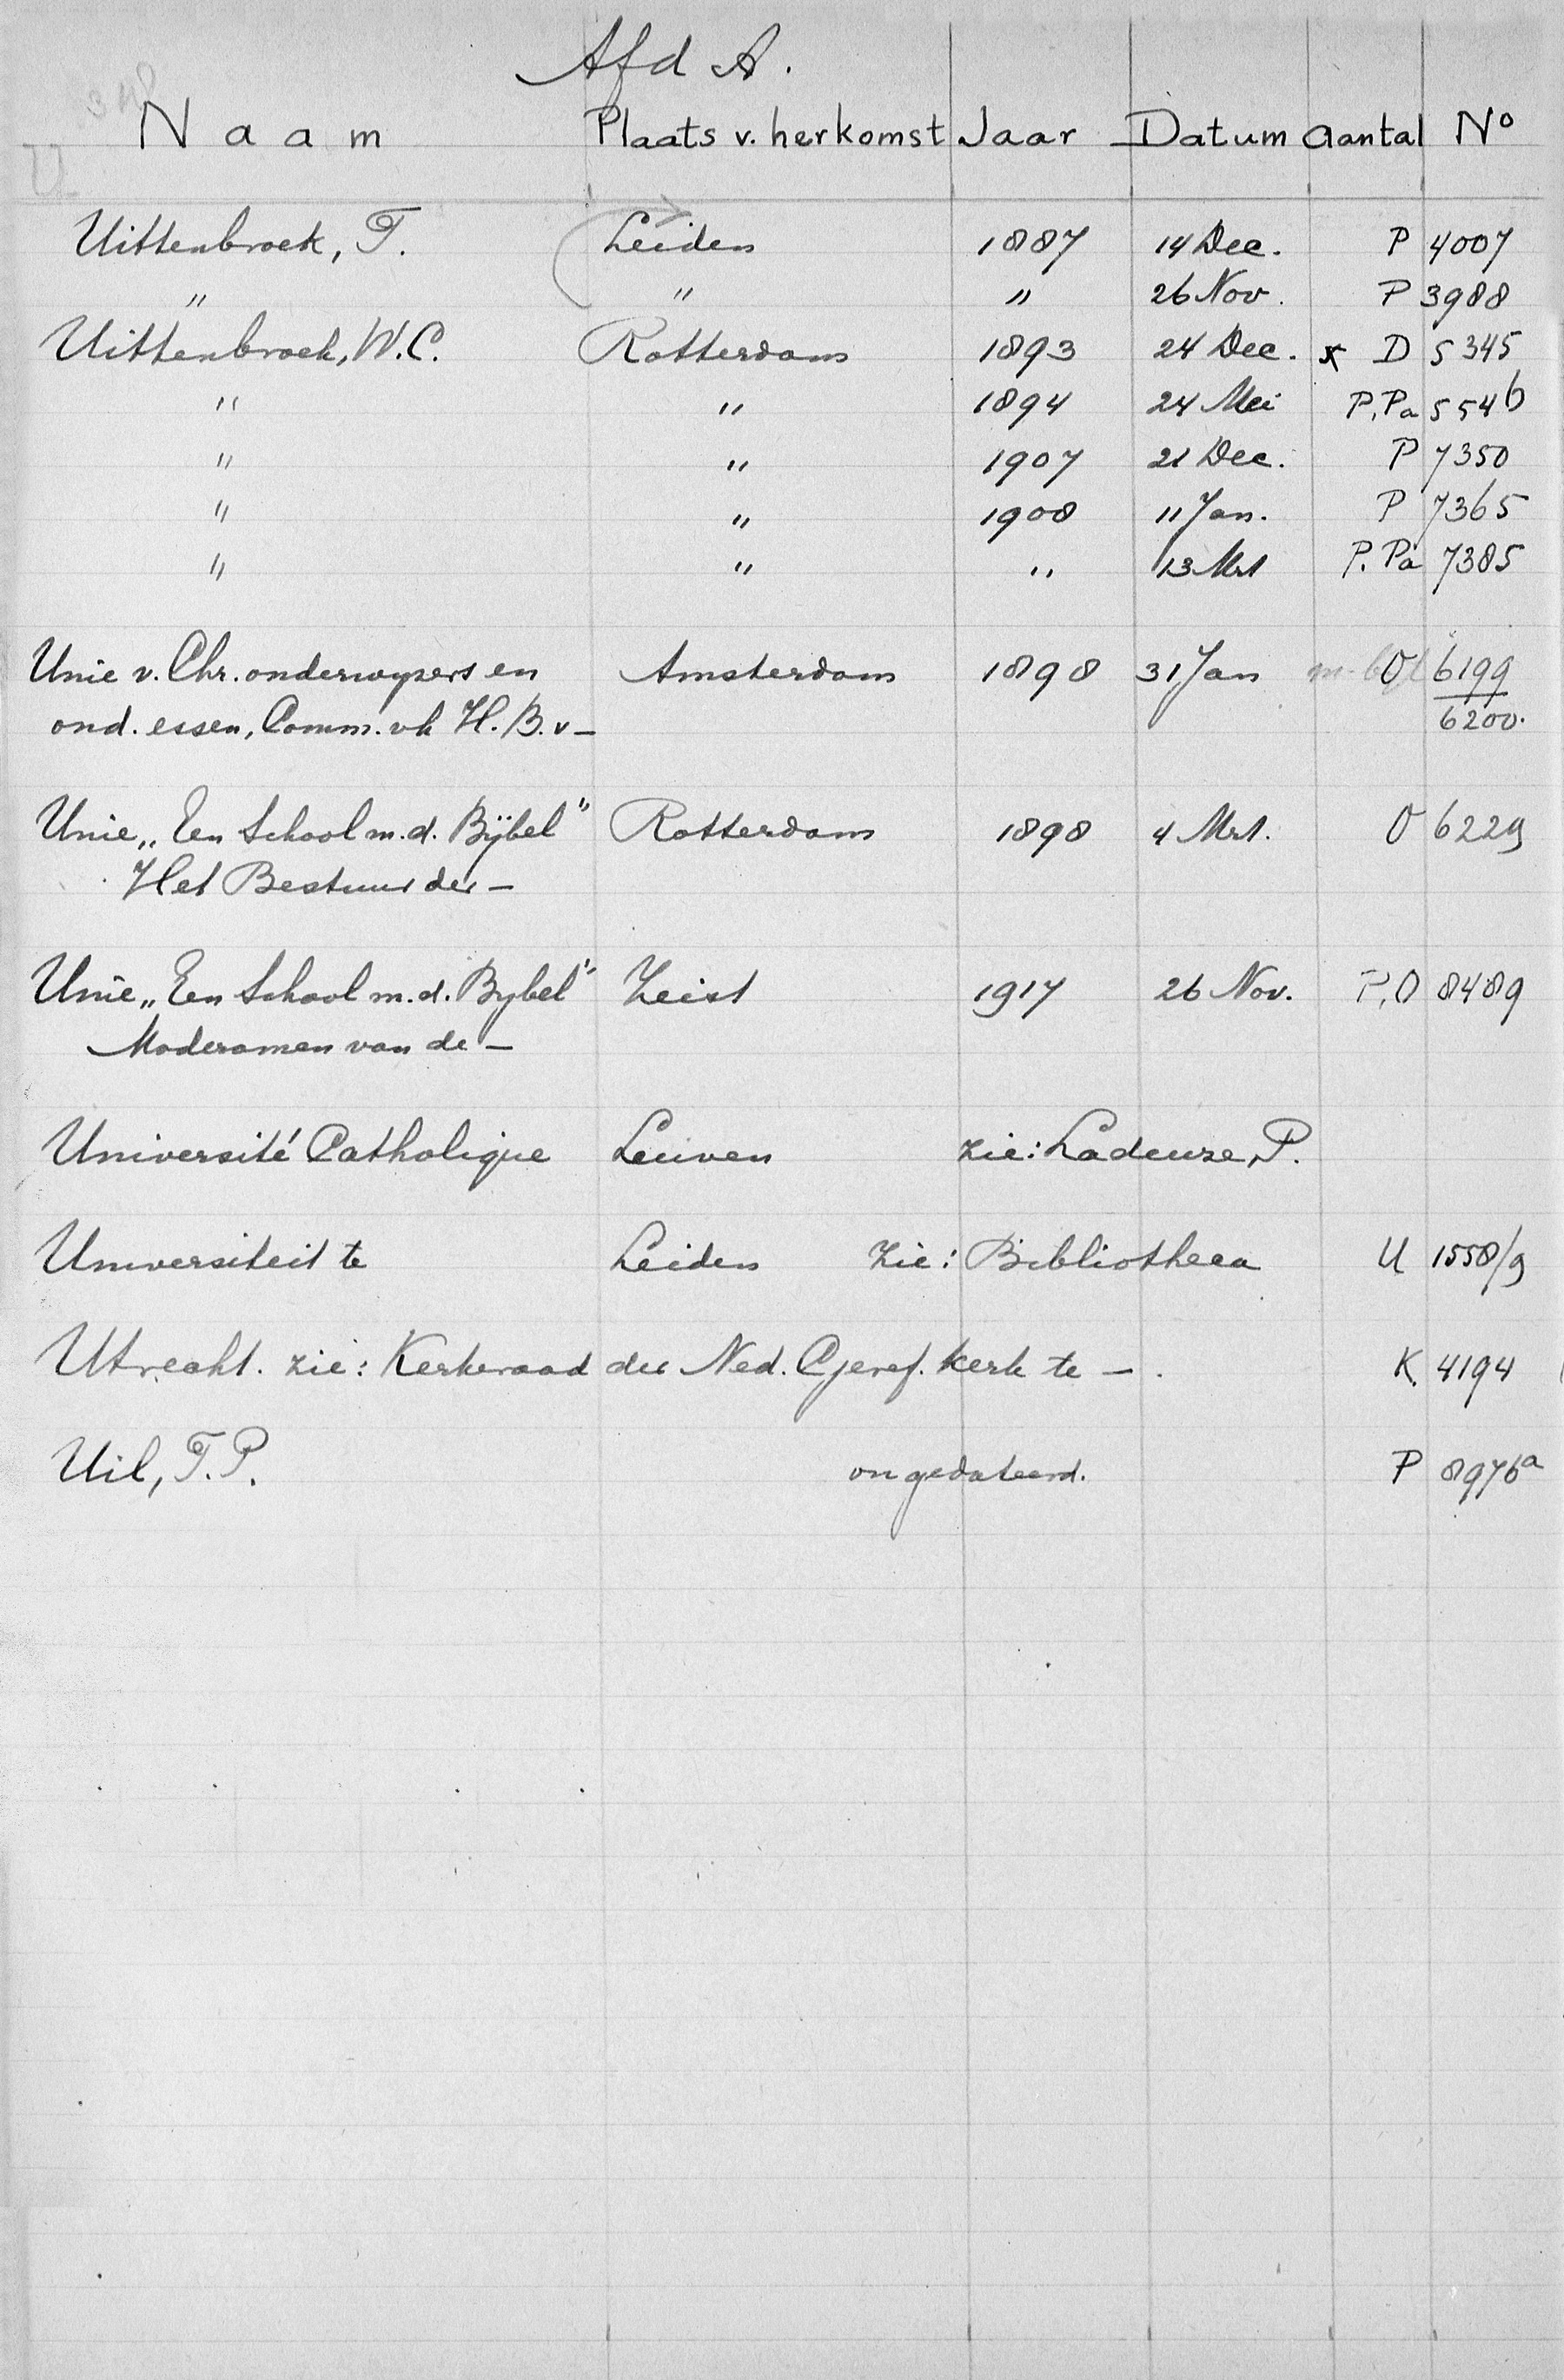 Afd A.
348
U
Naam Plaats v. herkomst Jaar Datum Aantal No
Uittenbroek, T. Leiden 1887 14 Dec. P 4007
" " " 26 Nov. P 3988
Uittenbroek, W.C. Rotterdam 1893 24 Dec. x D 5345
" " 1894 24 Mei P, Pa 5546
" " 1907 21 Dec. P 7350
" " 1908 11 Jan. P 7365
" " " 13 Mrt P. Pa 7385
Unie v. Chr. onderwyzers en Amsterdam 1898 31 Jan O 6199
ond. essen, Comm. vh H.B. v — 6200.
Unie „Een School m.d. Bijbel" Rotterdam 1898 4 Mrt. O 6229
Het Bestuur der —
Unie „Een School m.d. Bybel" Zeist 1917 26 Nov. P, O 8489
Moderamen van de —
Université Catholique Leuven zie: Ladeuze, P.
Universiteit te Leiden zie: Bibliotheca U 1558/9
Utrecht. zie: Kerkeraad der Ned. Geref. kerk te —. K. 4194
Uil, T.P. ongedateerd. P 8976a